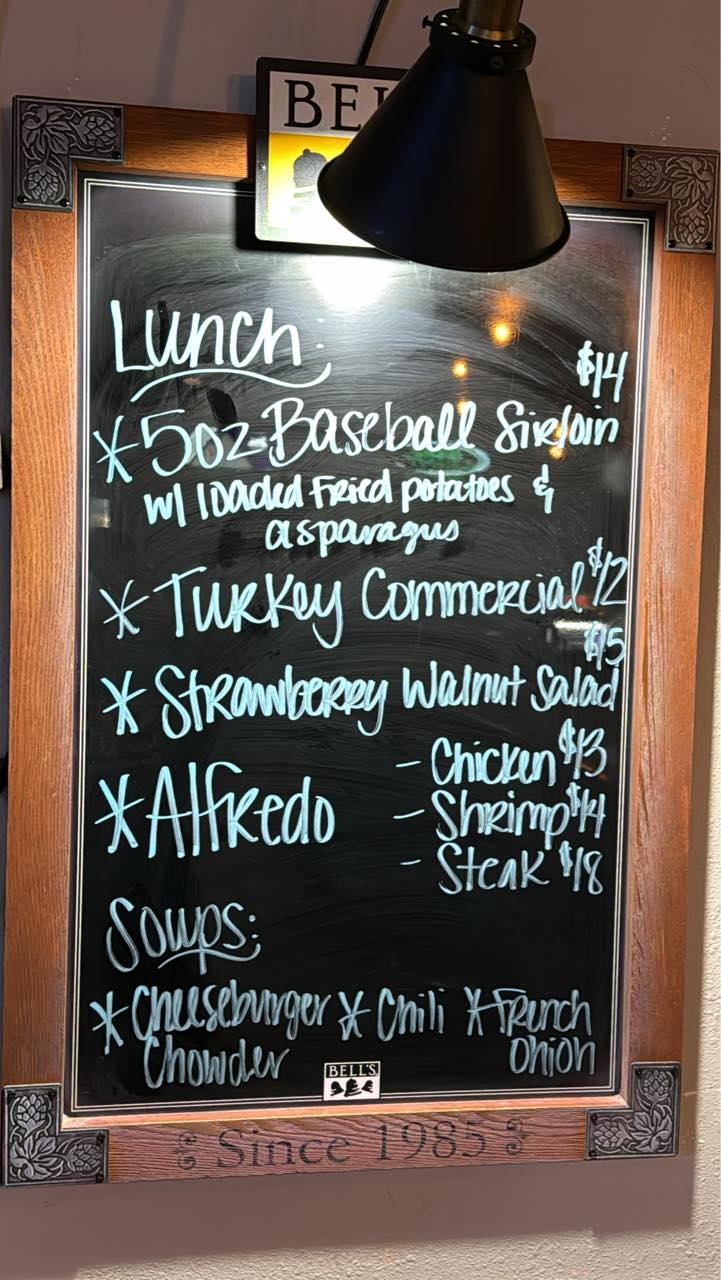 BEL
Lunch:
$14
* 5oz Baseball Sirloin
w/ loaded Fried potatoes &
asparagus
* Turkey Commercial $12
$15
* Strawberry Walnut Salad
* Alfredo
- Chicken $13
- Shrimp $14
- Steak $18
Soups:
* Cheeseburger * Chili * French
Chowder Onion
BELL'S
Since 1985